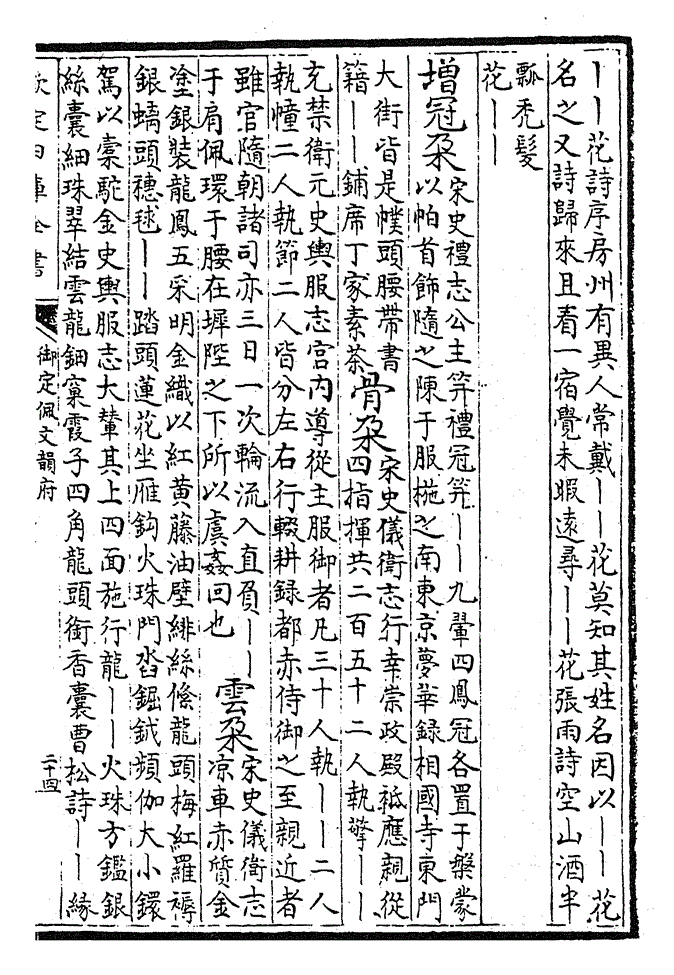 丨丨花詩序房州有異人常戴丨丨花莫知其姓名因以丨丨花
名之又詩歸來且看一宿覺未暇遠尋丨丨花張雨詩空山酒半
瓢禿髮
花丨丨
增冠朶宋史禮志公主笄禮冠笄丨丨九翬四鳳冠各置于槃蒙
以帕首飾隨之陳于服椸之南東京夢華録相國寺東門
大街皆是幞頭腰帶書
籍丨丨鋪席丁家素茶骨朶宋史儀衛志行幸崇政殿祗應親從
四指揮共二百五十二人執擎丨丨
充禁衛元史輿服志宫内導從主服御者凡三十人執丨丨二人
執幢二人執節二人皆分左右行輟耕録都赤侍御之至親近者
雖官隨朝諸司亦三日一次輪流入直負丨丨
于肩佩環于腰在墀陛之下所以虞姦回也雲朶宋史儀衛志
凉車赤質金
塗銀裝龍鳳五采明金織以紅黄藤油壁緋絲絛龍頭梅紅羅褥
銀螭頭穗毬丨丨踏頭蓮花坐雁鈎火珠門沓鋸鉞頻伽大小鐶
駕以槖駝金史輿服志大輦其上四面施行龍丨丨火珠方鑑銀
絲囊細珠翠結雲龍鈿窠霞子四角龍頭銜香囊曹松詩丨丨緣
欽定四庫全書
御定佩文韻府
二十四